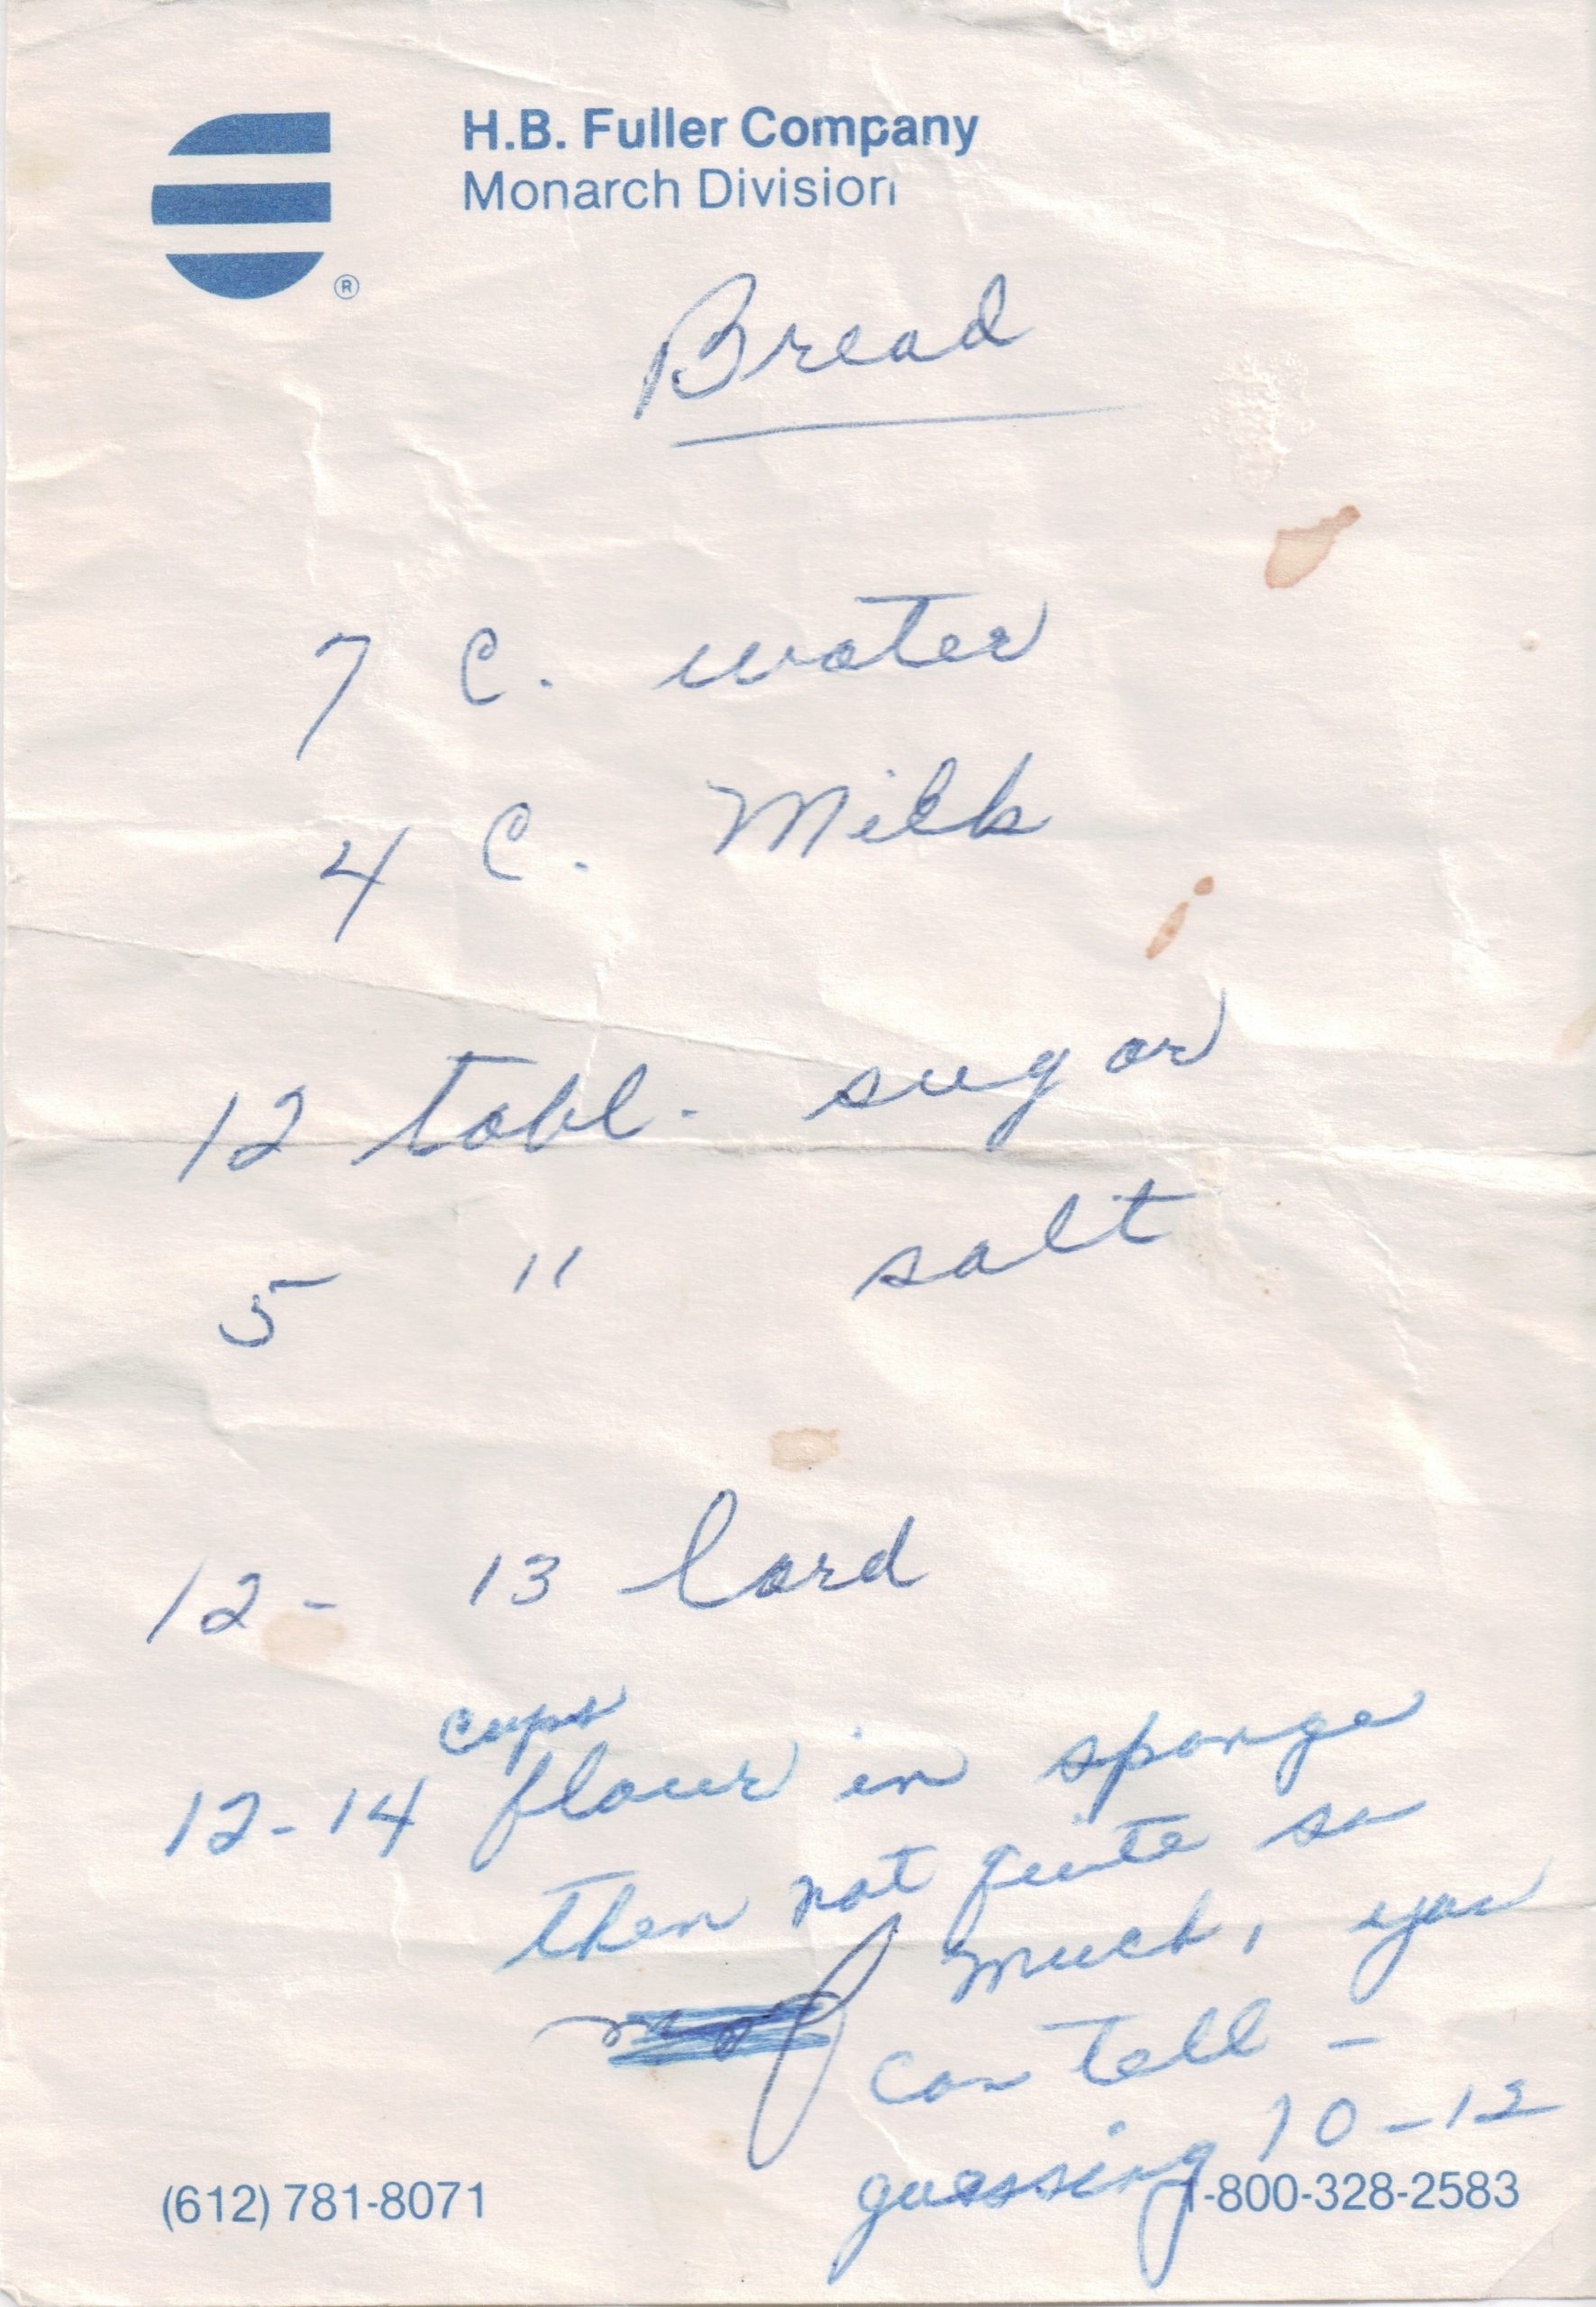 H.B. Fuller Company
Monarch Division
®
Bread
7 C. water
4 C. Milk
12 tabl. sugar
5 " salt
12 - 13 lard
cups
12-14 flour in sponge
then not quite so
much, you
can tell -
guessing 10-12
(612) 781-8071 1-800-328-2583